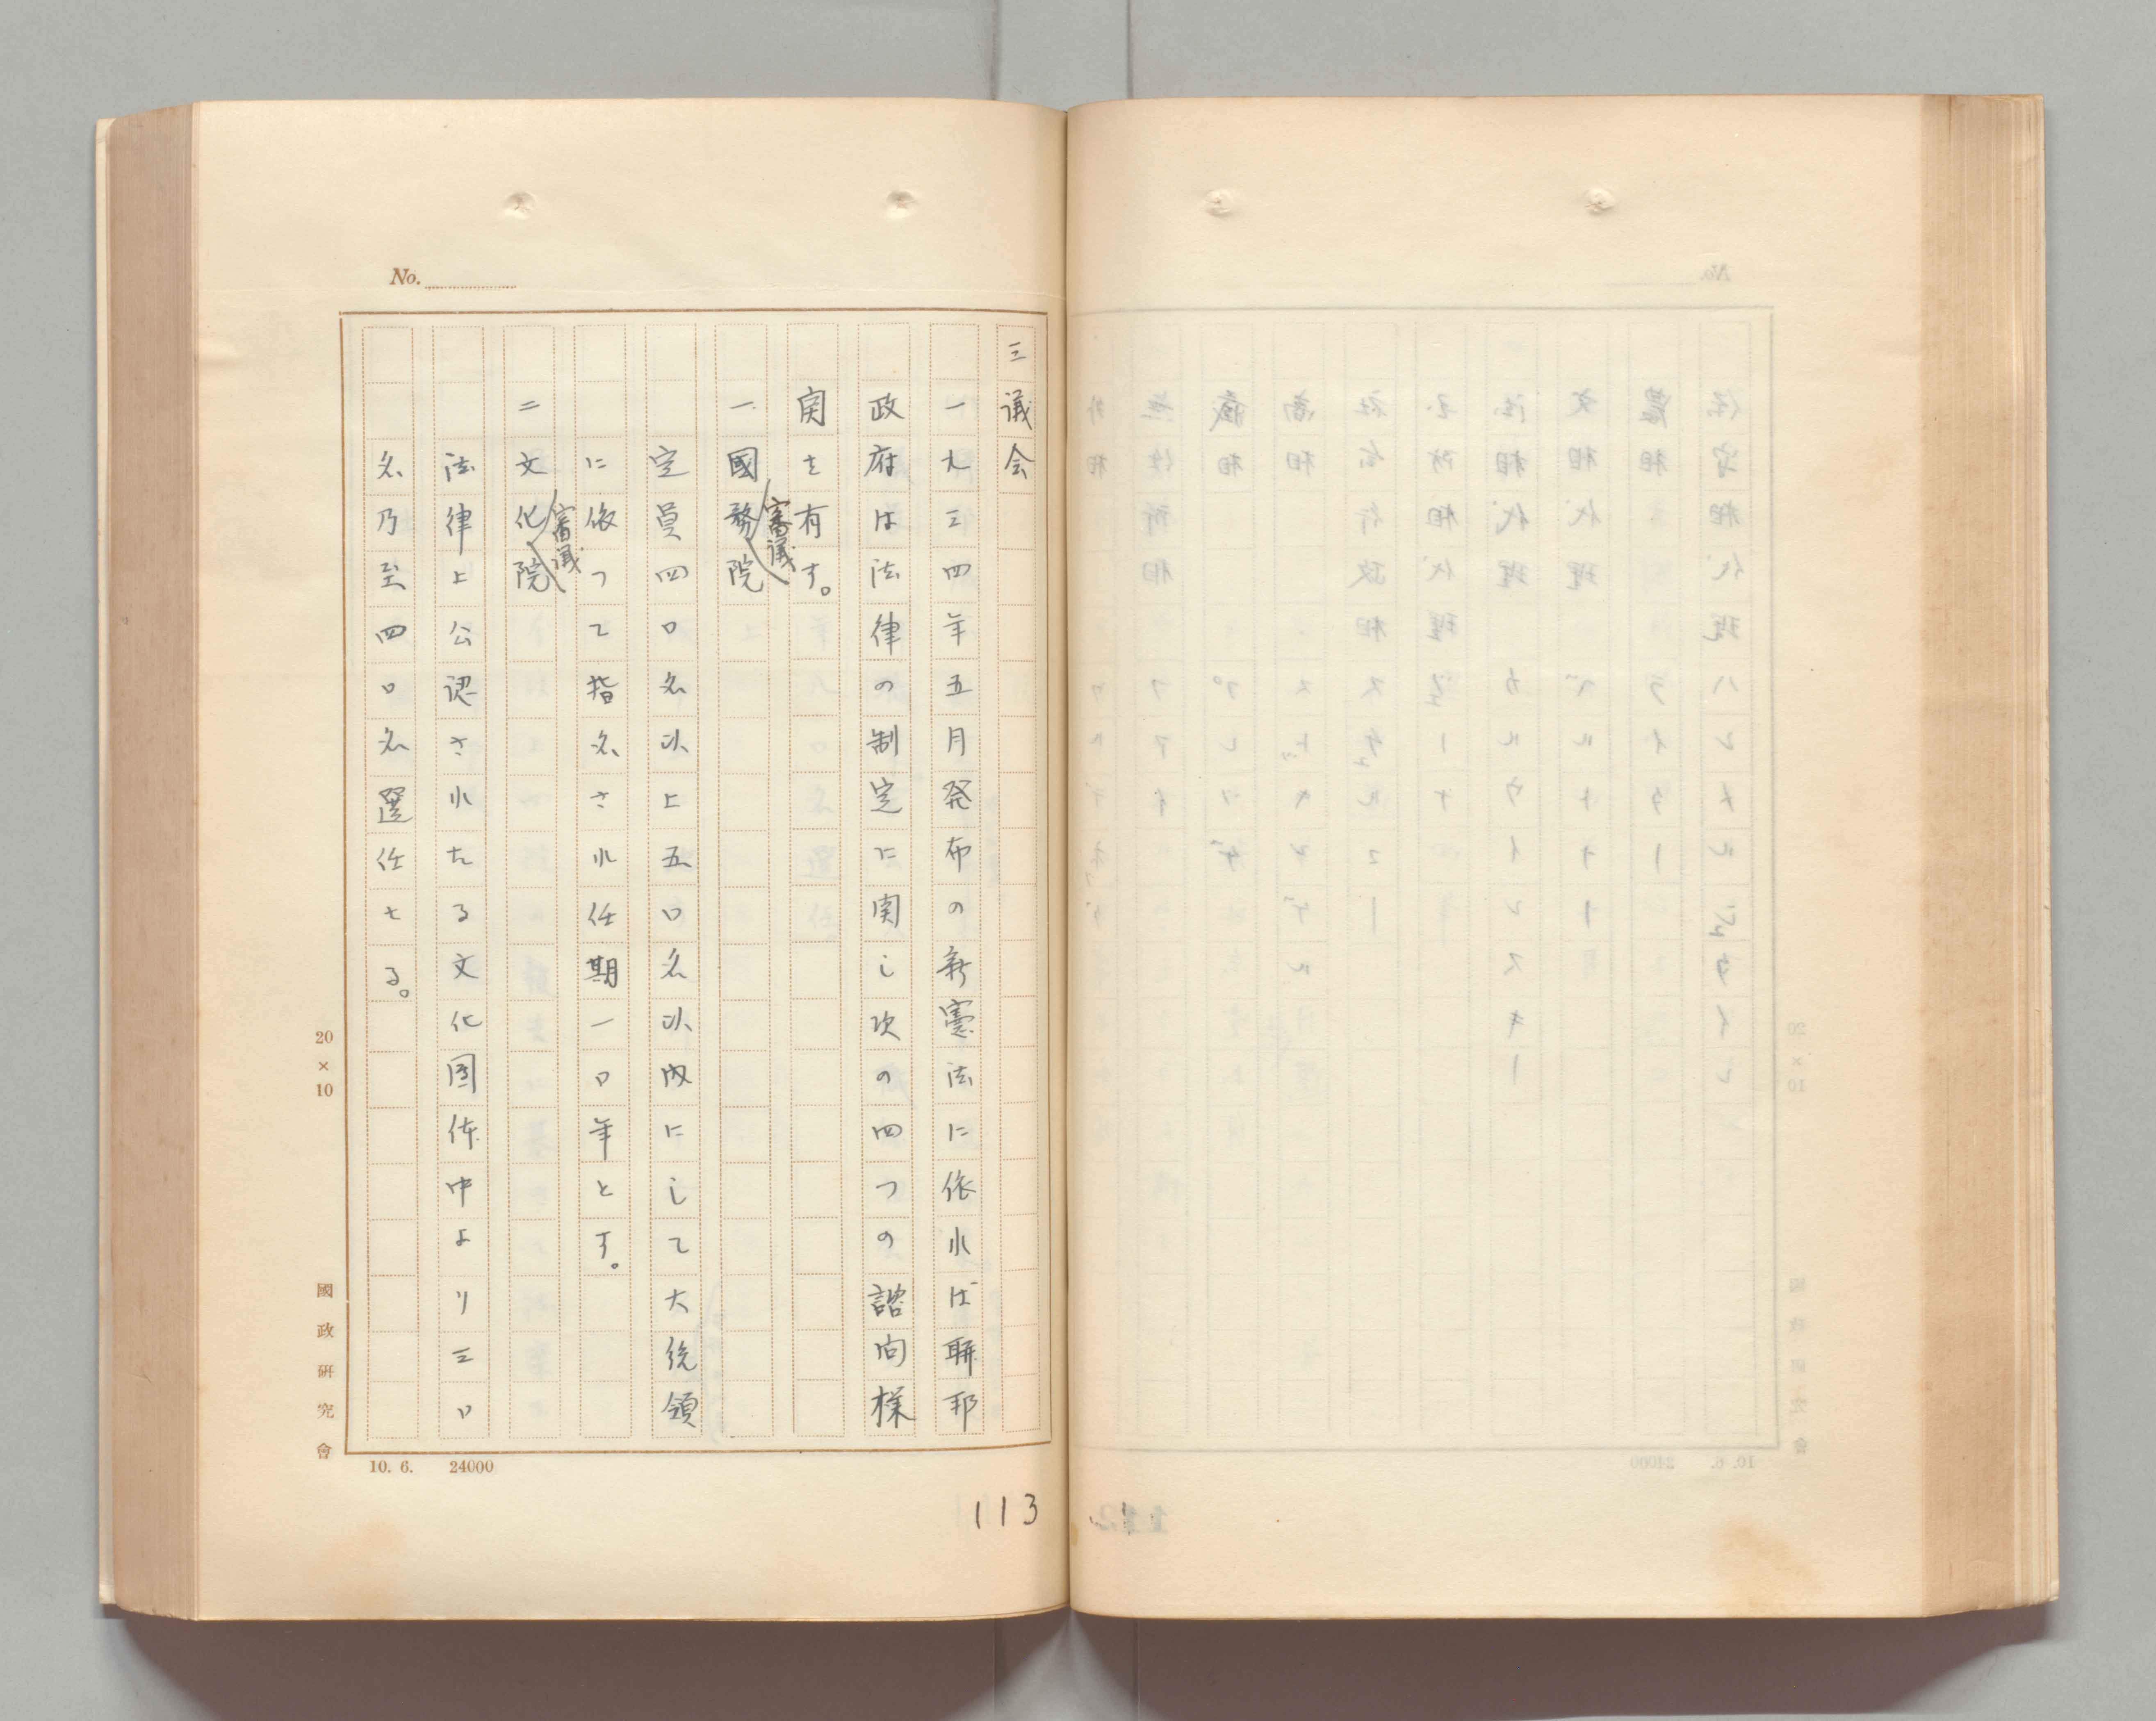 No.
三議会
一九三四年五月発布の新憲法に依れば聯邦
政府は法律の制定に関し次の四つの諮问様
関を有す。
一國務審議院
定員四〇名以上五〇名以内にして大統領
に依つて指名され任期一〇年とす。
二文化審議院
法律上公認されたる文化団体中より三〇
名乃至四〇名選任せる。
20×10
國政研究會
10. 6. 24000
113